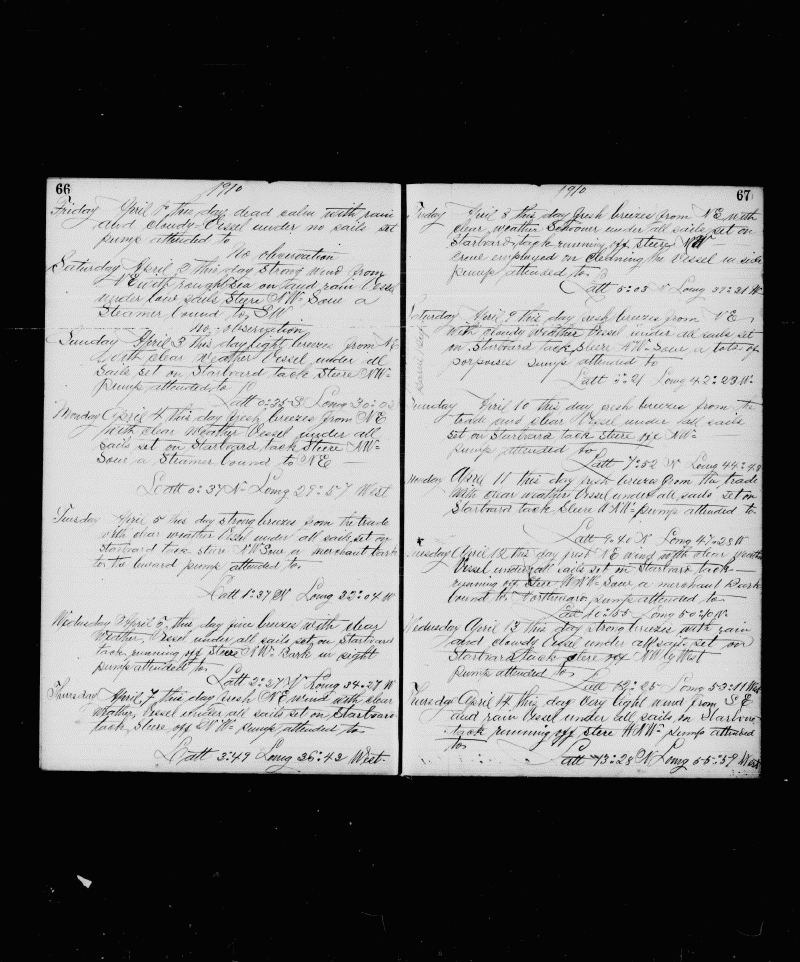 66
1910
Friday April 1st this day dead calm with rain
and cloudy Vessel under no sails set
pump attended to
No observation
Saturday April 2 this day strong wind from
NE with rough sea on and rain Vessel
under low sails Stere NW= Saw a
Steamer bound to SW
No observation
Sunday April 3 this day light breezes from NE
With clear Weather Vessel under all
sails set on Starboard tack Stere NW=
pump attended to
Latt 0=35 S Long 30=02
Monday April 4 this day fresh breezes from NE
With clear Weather Vessel under all
sails set on Starbord tack Stere NW=
Saw a Steamer bound to NE
Latt 0=37 N= Long 29=57 West
Tuesday April 5 this day strong breezes from the trade
with clear weather Vessel under all sails set on
Starbord tack stere NW Saw a merchant bark
to the leward pump attended to=
Latt 1=37 N Long 32=04 W
Wednesday April 6 this day fine breezes with clear
Weather, Vessel under all sails set on Starbord
tack running off Stere NW= Bark in sight
pump attended to
Latt 2=37 N Long 34=27 W
Thursday April 7 this day fresh NE wind with clear
Weather, Vessel under all sails set on Starbord
tack, Stere off NW= pump attended to
Latt 3=49 Long 36=42 West-
67
1910
Friday April 8 this day fresh breezes from NE with
clear weather Schooner under all sails set on
Starbord tack running off stere NW
Crew employed on Cleaning the Vessel in side
pump attended to
Latt 5=03 N Long 39=21 W
Saturday April 9 this day fresh breezes from NE
With cloudy Weather Vessel under all sails set
on Starbord tack Stere NW= Saw a lots of
porpoises pump attended to
Latt =21 Long 42=23 W=
Sunday April 10 this day fresh breezes from the
trade and clear Vessel under all sails
set on Starbord tack Stere off NW=
pump attended to
Latt 7=52 N Long 44=48
Monday April 11 this day fresh breezes from the trade
With clear weather Vessel under all sails set on
Starbord tack Stere WNW= pump attended to
Latt 9=40 N Long 47=28 W
Tuesday April 12 this day first NE wind with clear weather
Vessel under all sails set on Starbord tack
running off Stere WNW= Saw a merchant Bark
bound to Northward pump attended to
Latt 10=55 Long 50=40 W=
Wednesday April 13 this day strong breezes with rain
and cloudy Vessel under all sails set on
Starbord tack stere off NW by West
pump attended to
Latt 12=25 Long 53=11 West
Thursday April 14 this day Very light wind from SE
and rain Vessel under all sails on Starbord
tack running off stere WNW= pump attended
to
Latt 13=28 N Long 55=59 West